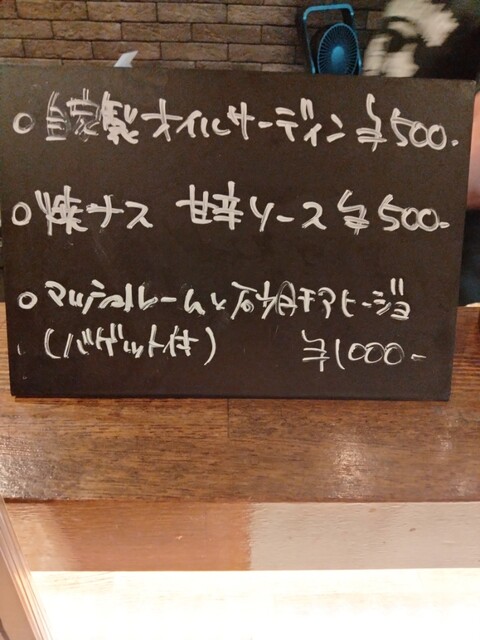 ○ 自家製オイルサーディン ¥500.
○ 焼ナス 甘辛ソース ¥500-
○ マッシュルームと砂肝アヒージョ
(バゲット付) ¥1000-